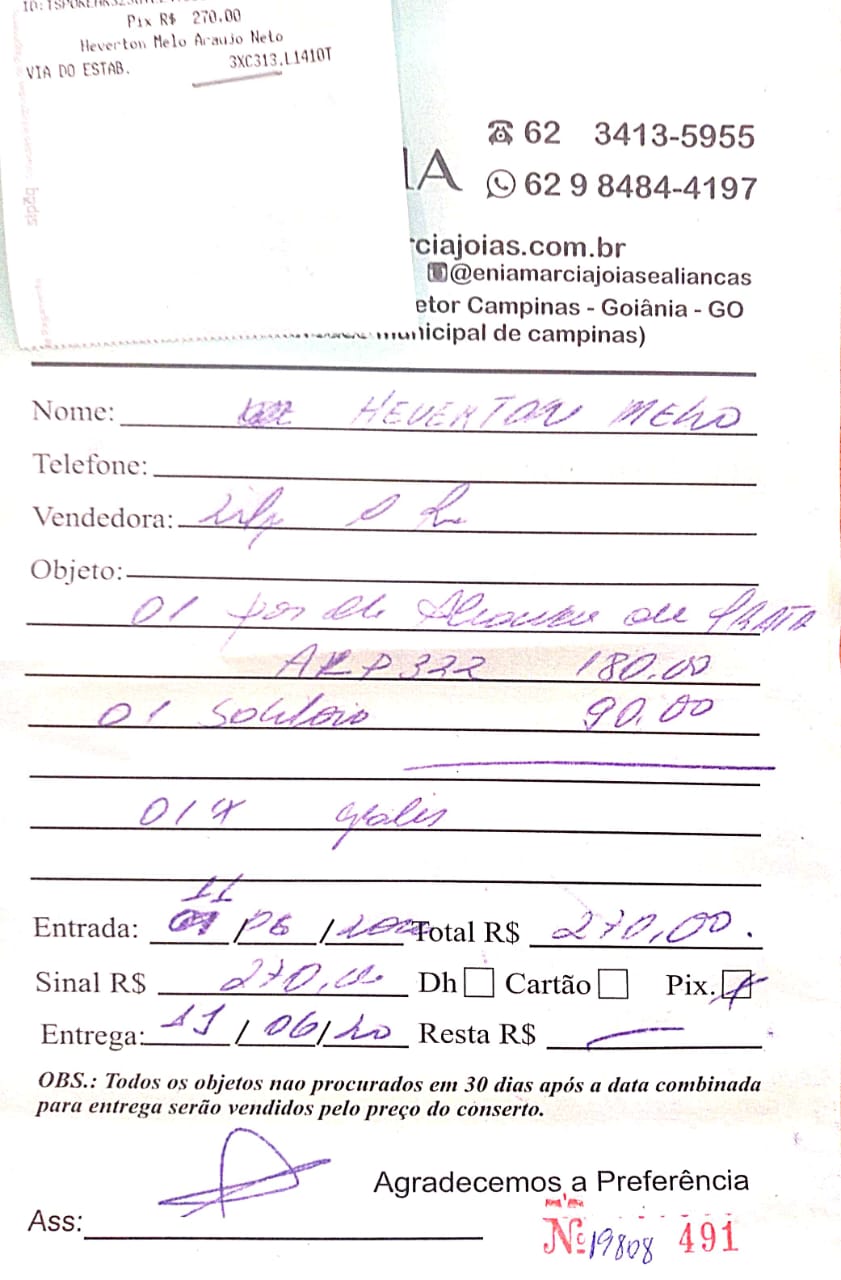 Pix R$ 270.00
Heverton Melo Araujo Neto
VIA DO ESTAB. 3XC313.L1410T
62 3413-5955
IA 62 9 8484-4197
rciajoias.com.br
@eniamarciajoiasealiancas
etor Campinas - Goiânia - GO
municipal de campinas)
Nome: HEVERTON MELO
Telefone:
Vendedora:
Objeto:
01 par de Alianças de PRATA
ARP322 180.00
01 Solitário 90.00
01 X
Entrada: 11/06/ Total R$ 270,00.
Sinal R$ 270,00 Dh Cartão Pix.
Entrega: 11/06/20 Resta R$
OBS.: Todos os objetos nao procurados em 30 dias após a data combinada
para entrega serão vendidos pelo preço do conserto.
Agradecemos a Preferência
Ass:
Nº 19808 491